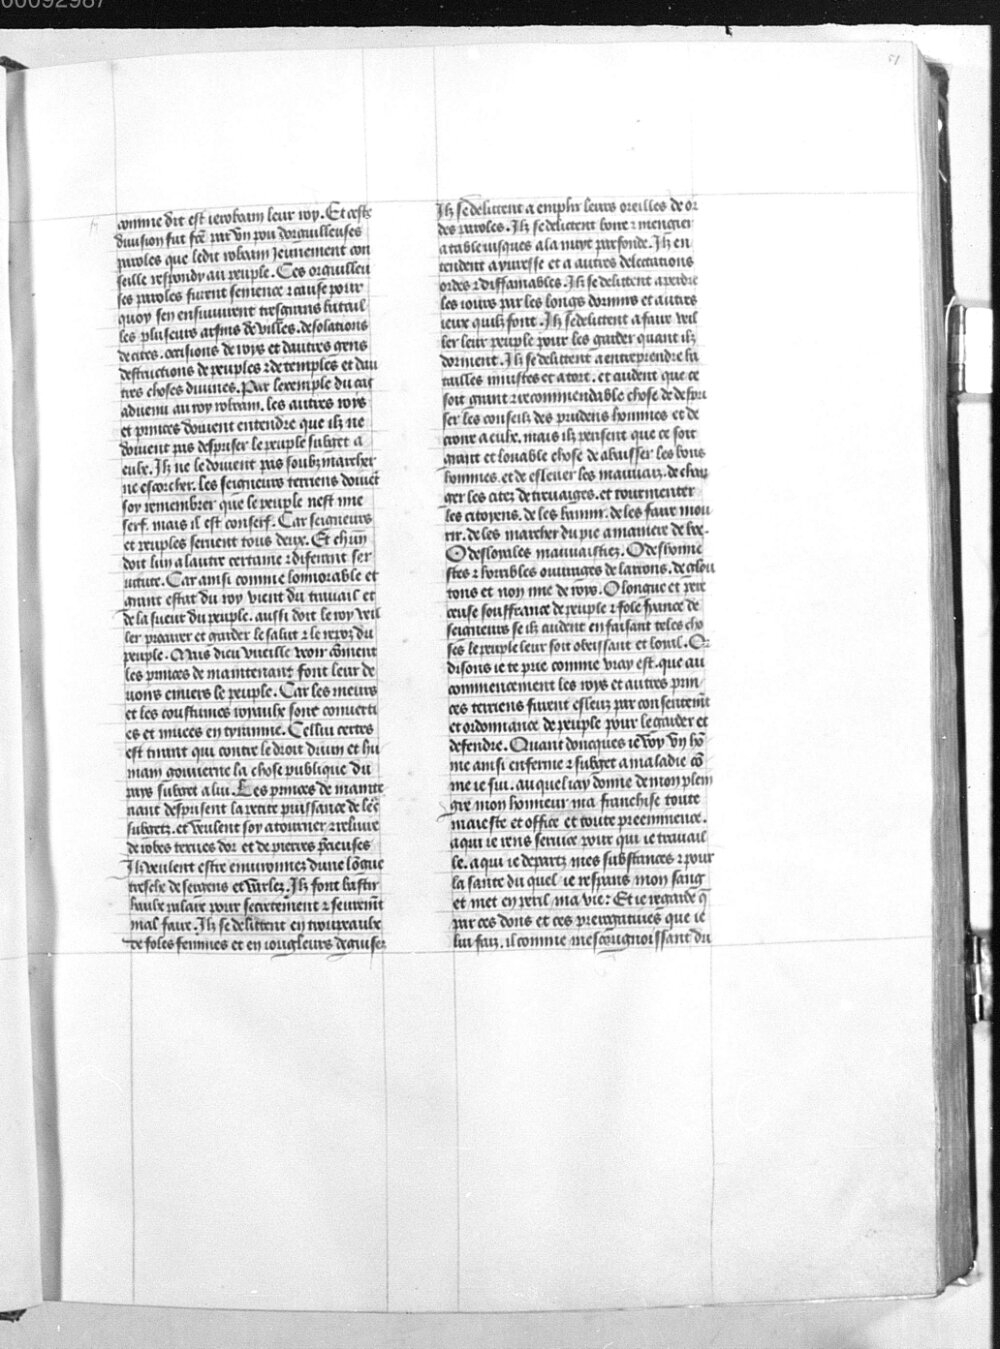 00092987
51
comme dit est ieroboam leur roy. Et ceste
diuision fut fcē par vn pou dorguilleuses
paroles que ledit roboam Jeunement con
seille respondy au peuple. Ces orguilleu
ses paroles furent semence ⁊ cause pour
quoy sen ensuiuirent tresgrans batail
les pluseurs arsins de villes. desolations
de citez. occisions de roys et dautres gens
destructions de peuples ⁊ de temples et dau
tres choses diuines. Par lexemple du cas
aduenu au roy roboam. les autres roys
et princes doiuent entendre que ilz ne
doiuent pas despriser le peuple subget a
eulx. Ilz ne le doiuent pas soubzmarcher
ne escorcher. Les seigneurs terriens doiuēt
soy remembrer que le peuple nest mie
serf. mais il est conserf. Car seigneurs
et peuples seruent tous deux. Et chūn
doit lun a lautre certaine ⁊ diferant ser
uiture. Car ainsi comme lonnorable et
grant estat du roy vient du trauail et
de la sueur du peuple. aussi doit le roy veil
ler procurer et garder le salut ⁊ le repoz du
peuple. Mais dieu vueille veoir cōment
les princes de maintenant font leur de
uoirs enuers le peuple. Car les meurs
et les coustumes royaulx sont conuerti
es et muees en tyrannie. Cellui certes
est tirant qui contre le droit diuin et hu
main gouuerne la chose publique du
pays subget a lui. Les princes de mainte
nant desprisent la petite puissance de leˢ
subgetz. et veulent soy atourner ⁊ reluire
de robes texues dor et de pierres p̄cieuses
Ilz veulent estre enuironnez dune lōgue
tresche de sergens et varlez. Ilz font bastir
haulx palais pour secretement ⁊ seuremēt
mal faire. Ilz se delittent en troupeaulx
de foles femmes et en iougleurs deguisez
Ilz se delittent a emplir leurs oreilles de or
des paroles. Ilz se delittent boire ⁊ mengier
a table iusques a la nuyt parfonde. Ilz en
tendent a yuresse et a autres delectations
ordes ⁊ diffamables. Ilz se delittent a perdre
les iours par les longs dormirs et autres
ieux quilz font. Ilz se delittent a faire veil
ler leur peuple pour les garder quant ilz
dorment. Ilz se delittent a entreprendre ba
tailles iniustes et a tort. et cuident que ce
soit grant ⁊ recommendable chose de despri
ser les conseilz des prudens hommes et de
croire a eulx. mais ilz pensent que ce soit
grant et louable chose de abaisser les bons
hommes. et de esleuer les mauuaiz. de char
ger les citez de treuaiges. et tourmenter
les citoyens. de les bannir. de les faire mou
rir. de les marcher du pie a maniere de boe.
O desloyales mauuaistiez. O deshonne
stes ⁊ horribles ouurages de larrons. de glou
tons et non mie de roys. O longue et pere
ceuse souffrance de peuple ⁊ fole fiance de
seigneurs se ilz cuident en faisant teles cho
ses le peuple leur soit obeissant et loyal. Or
disons ie te prie comme vray est. que au
commencement les roys et autres prin
ces terriens furent esleuz par consentemēt
et ordonnance de peuple pour le garder et
defendre. Quant doncques ie voy vn hō
me ainsi enferme ⁊ subget a maladie cō
me ie sui. au quel iay donne de mon plein
gre mon honneur ma franchise toute
maieste et office et toute preeminence.
a qui ie rens seruice pour qui ie trauail
le. a qui ie departz mes substances ⁊ pour
la sante du quel ie respans mon sang
et met en peril ma vie: Et ie regarde q̄
par ces dons et ces prerogatiues que ie
lui faiz. il comme mescongnoissant du